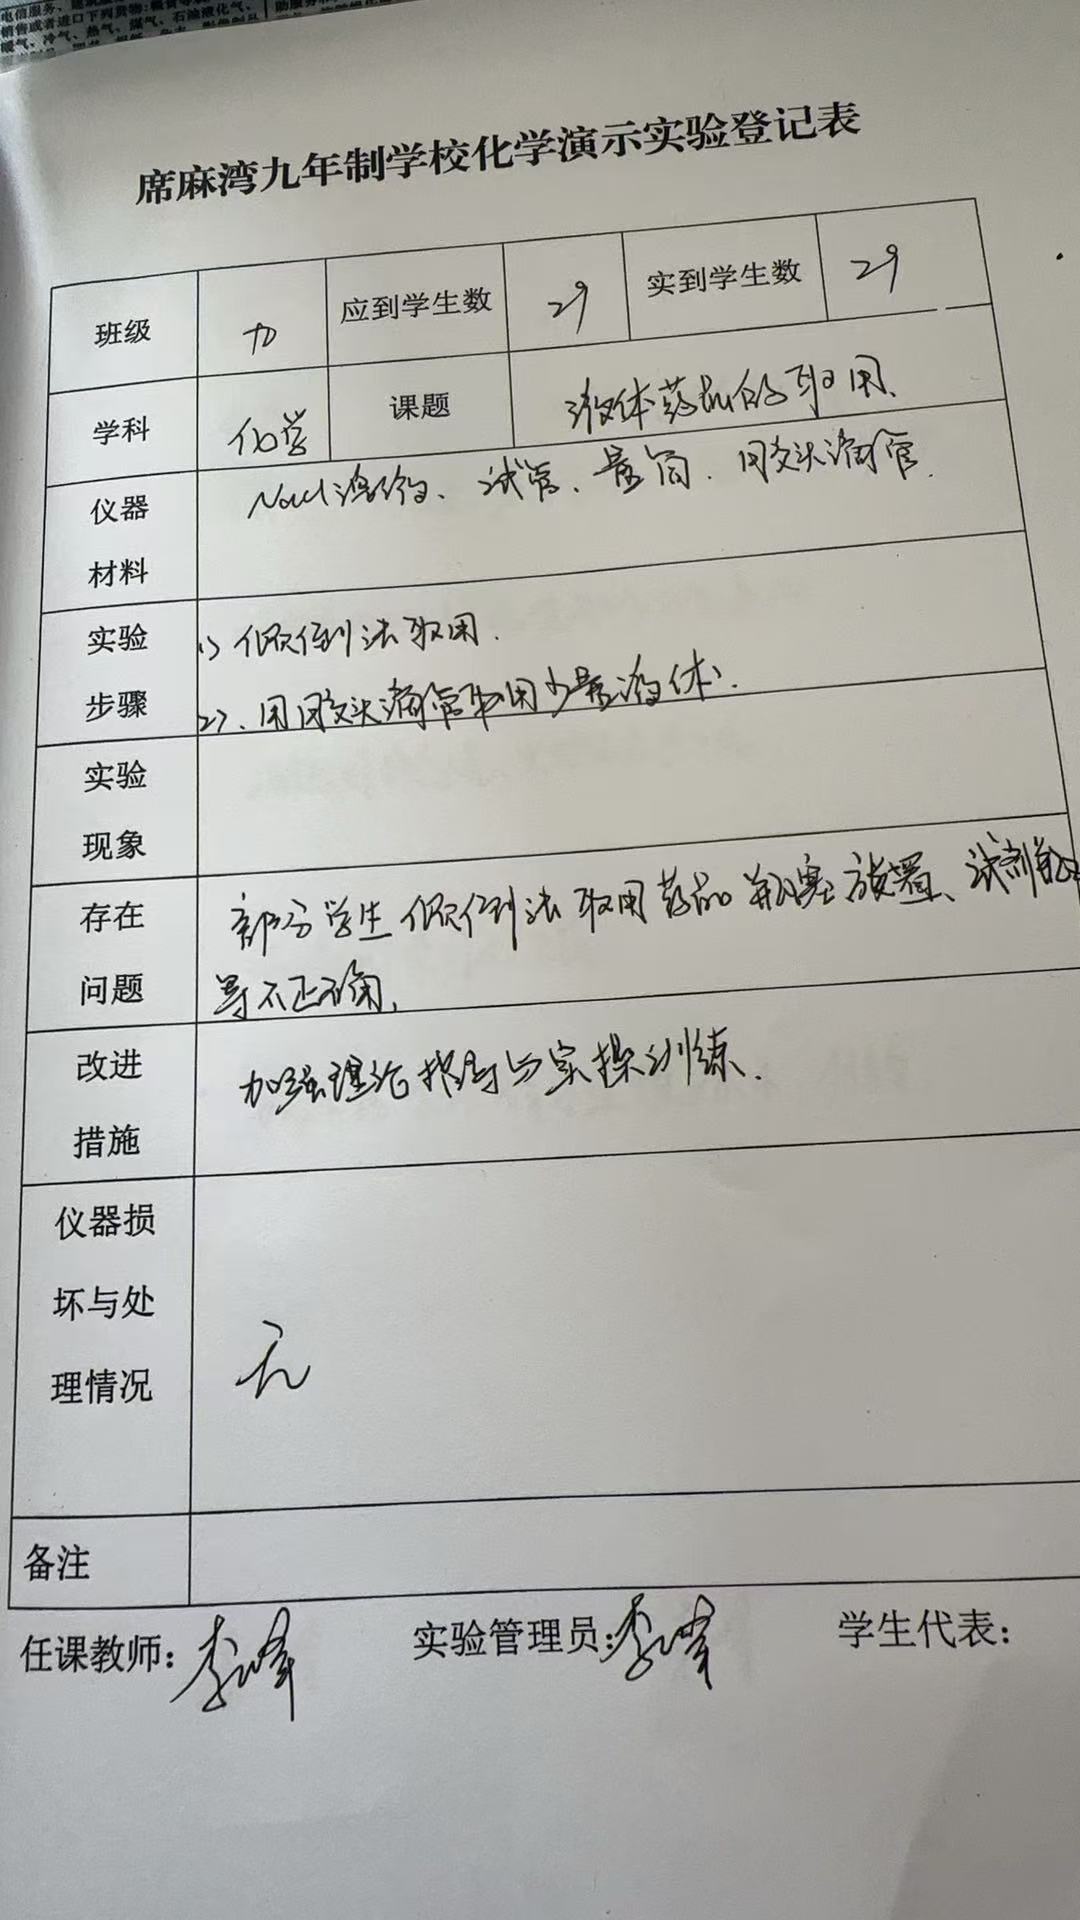 电信服务、建筑服
销售或者进口下列货物:粮食等
暖气、冷气、热气、煤气、石油液化气、
席麻湾九年制学校化学演示实验登记表
班级 九 应到学生数 29 实到学生数 29
学科 化学 课题 液体药品的取用.
仪器 Nacl溶液、试管、量筒.胶头滴管.
材料
实验 1) 倾倒法取用.
步骤 2)、用胶头滴管取用少量液体.
实验
现象
存在 部分学生倾倒法取用药品瓶塞放置、试剂瓶
问题 等不正确.
改进 加强理论指导与实操训练.
措施
仪器损
坏与处
理情况 无
备注
任课教师: 李峰 实验管理员: 李峰 学生代表: